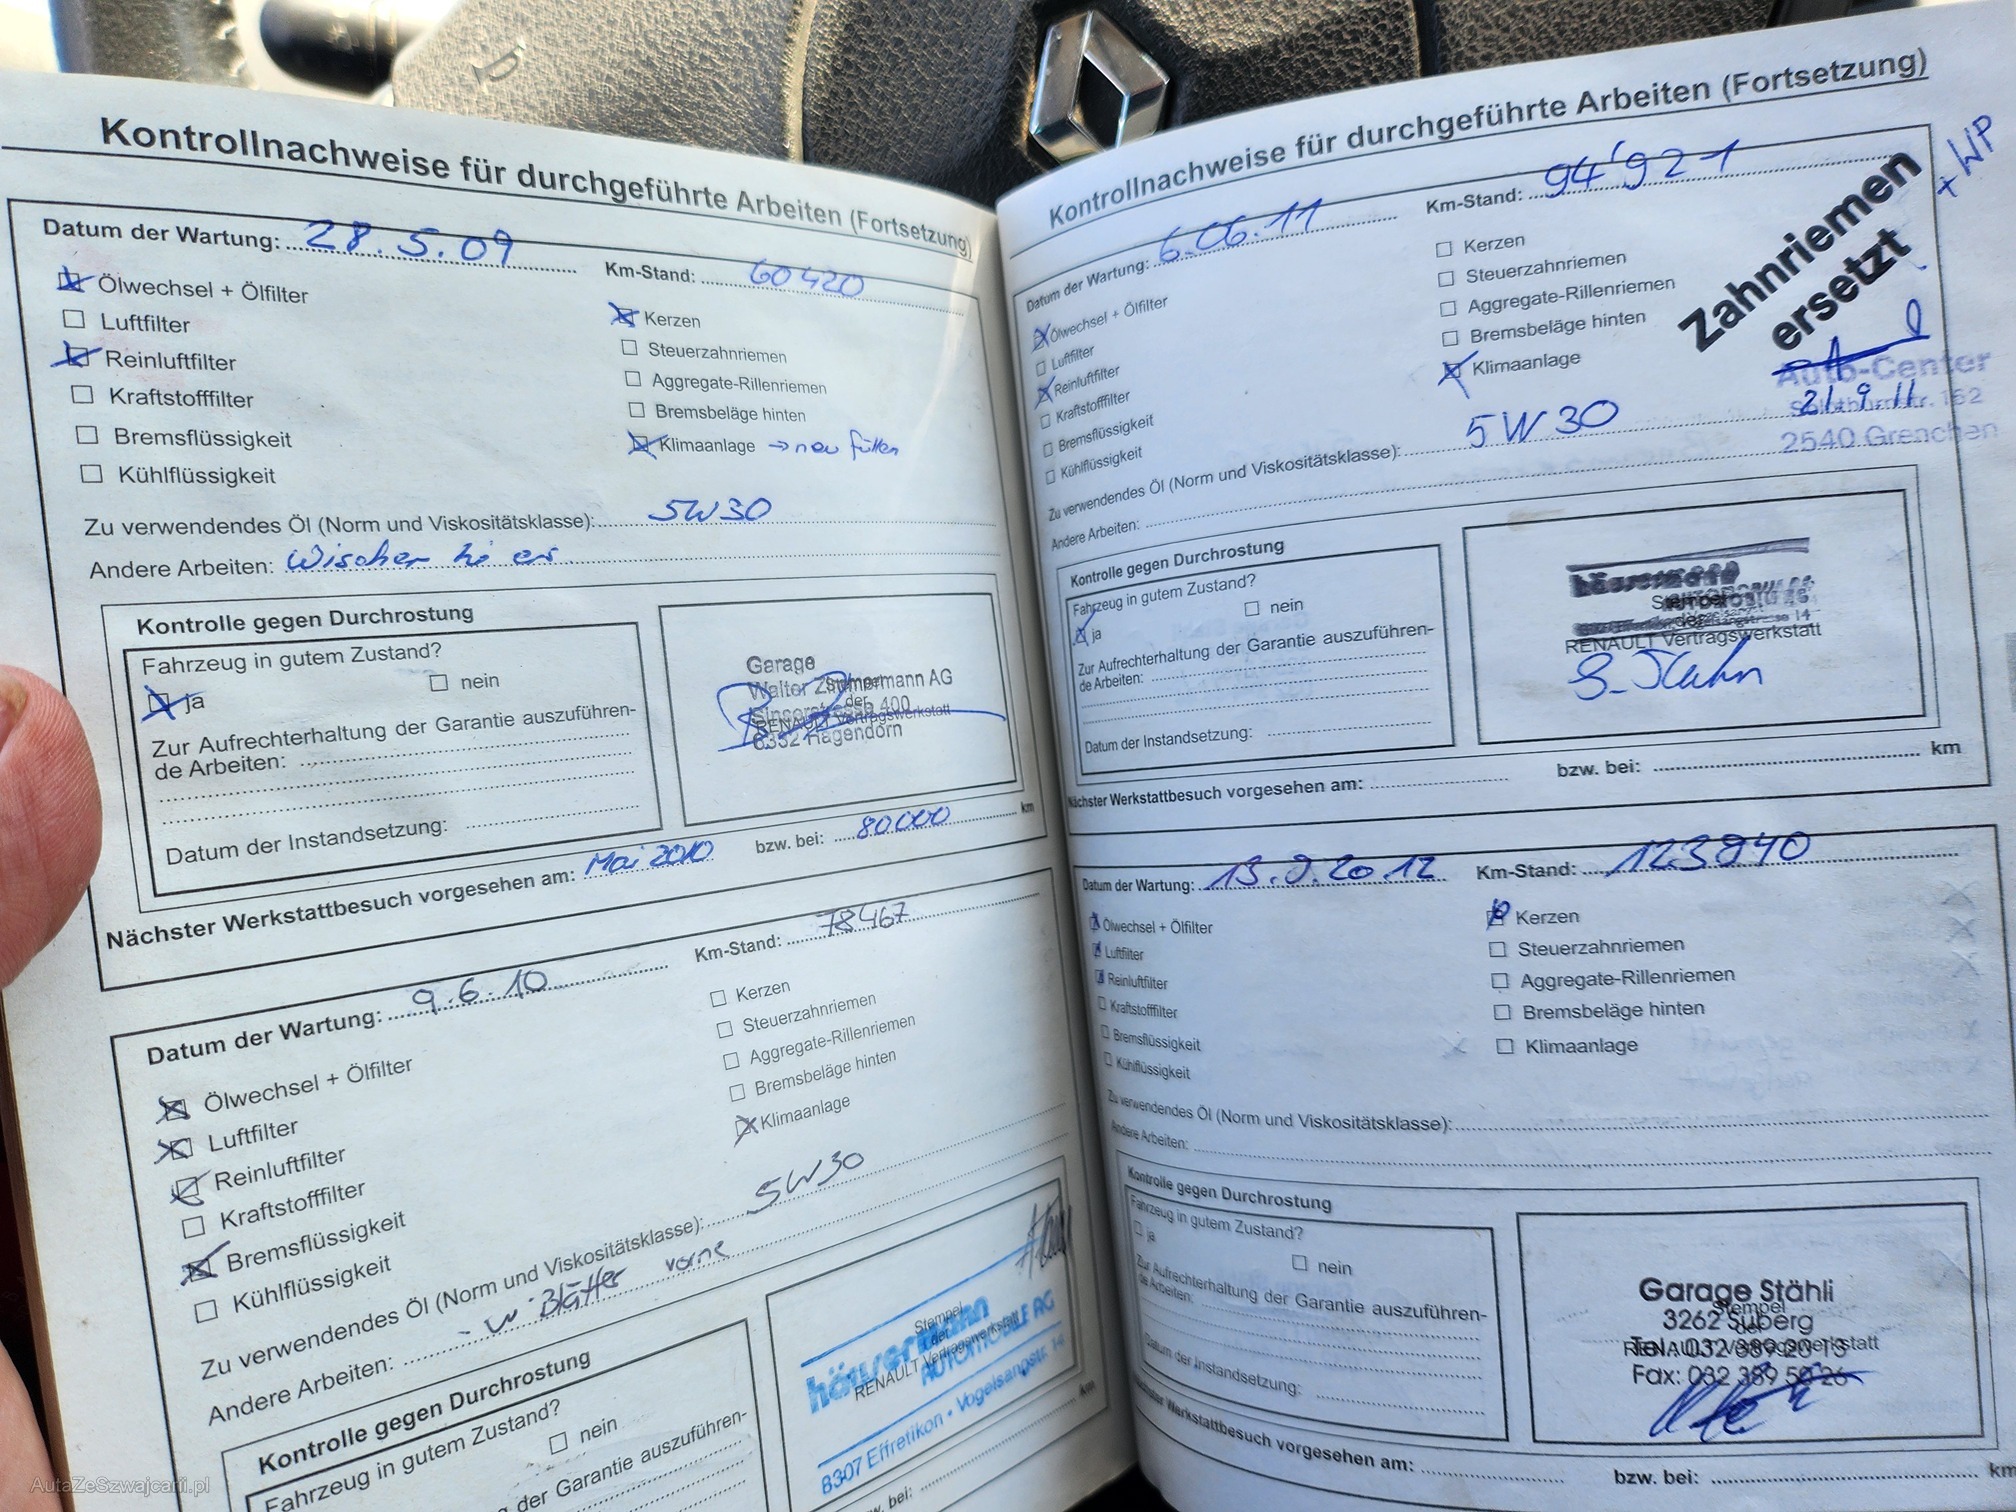 Kontrollnachweise für durchgeführte Arbeiten (Fortsetzung)
Datum der Wartung: 28.5.09
Km-Stand: 60420
Ölwechsel + Ölfilter
Luftfilter
Reinluftfilter
Kraftstofffilter
Bremsflüssigkeit
Kühlflüssigkeit
Kerzen
Steuerzahnriemen
Aggregate-Rillenriemen
Bremsbeläge hinten
Klimaanlage → neu füllen
Zu verwendendes Öl (Norm und Viskositätsklasse): 5W30
Andere Arbeiten: Wischer hi
Kontrolle gegen Durchrostung
Fahrzeug in gutem Zustand?
ja
nein
Zur Aufrechterhaltung der Garantie auszuführen-
de Arbeiten:
Datum der Instandsetzung:
Garage
Walter Zimmermann AG
400
RENAULT Vertragswerkstatt
6332 Hagendorn
Nächster Werkstattbesuch vorgesehen am: Mai 2010
bzw. bei: 80000 km
Datum der Wartung: 9.6.10
Km-Stand: 78467
Ölwechsel + Ölfilter
Luftfilter
Reinluftfilter
Kraftstofffilter
Bremsflüssigkeit
Kühlflüssigkeit
Kerzen
Steuerzahnriemen
Aggregate-Rillenriemen
Bremsbeläge hinten
Klimaanlage
Zu verwendendes Öl (Norm und Viskositätsklasse): 5W30
Andere Arbeiten: - W'Blätter vorne
Kontrolle gegen Durchrostung
Fahrzeug in gutem Zustand?
nein
der Garantie auszuführen-
Stempel
der
RENAULT Vertragswerkstatt
häusermann
AUTOMOBILE AG
8307 Effretikon • Vogelsangstr. 14
bzw. bei:
km
Kontrollnachweise für durchgeführte Arbeiten (Fortsetzung)
Datum der Wartung: 6.06.11
Km-Stand: 94'921
Ölwechsel + Ölfilter
Luftfilter
Reinluftfilter
Kraftstofffilter
Bremsflüssigkeit
Kühlflüssigkeit
Kerzen
Steuerzahnriemen
Aggregate-Rillenriemen
Bremsbeläge hinten
Klimaanlage
Zahnriemen
ersetzt
+ WP
Auto-Center
21.9.11
2540 Grenchen
Zu verwendendes Öl (Norm und Viskositätsklasse): 5W30
Andere Arbeiten:
Kontrolle gegen Durchrostung
Fahrzeug in gutem Zustand?
ja
nein
Zur Aufrechterhaltung der Garantie auszuführen-
de Arbeiten:
Datum der Instandsetzung:
häusermann
Stempel
der
RENAULT Vertragswerkstatt
Nächster Werkstattbesuch vorgesehen am:
bzw. bei: km
Datum der Wartung: 13.9.2012
Km-Stand: 123940
Ölwechsel + Ölfilter
Luftfilter
Reinluftfilter
Kraftstofffilter
Bremsflüssigkeit
Kühlflüssigkeit
Kerzen
Steuerzahnriemen
Aggregate-Rillenriemen
Bremsbeläge hinten
Klimaanlage
Zu verwendendes Öl (Norm und Viskositätsklasse):
Andere Arbeiten:
Kontrolle gegen Durchrostung
Fahrzeug in gutem Zustand?
ja
nein
Zur Aufrechterhaltung der Garantie auszuführen-
de Arbeiten:
Datum der Instandsetzung:
Garage Stähli
Stempel
3262 Suberg
der
RENAULT Vertragswerkstatt
Tel. 032 389 20 13
Fax: 032 389 50 26
Nächster Werkstattbesuch vorgesehen am:
bzw. bei: km
AutaZeSzwajcarii.pl